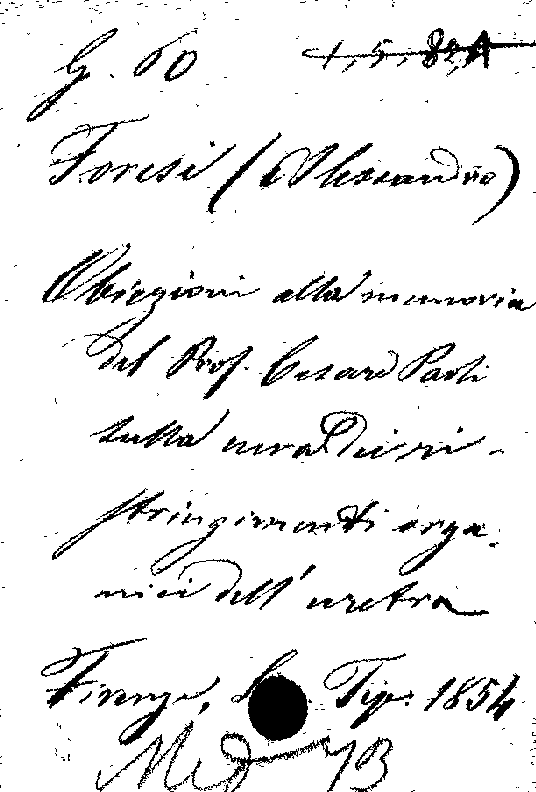 G. 60 1, 5, 82, A
Foresi (Alessandro)
Obiezioni alla memoria
del Prof. Cesare Paoli
sulla cura dei ri-
stringimenti orga-
nici dell' uretra
Firenze, Tip. 1854
Med 73